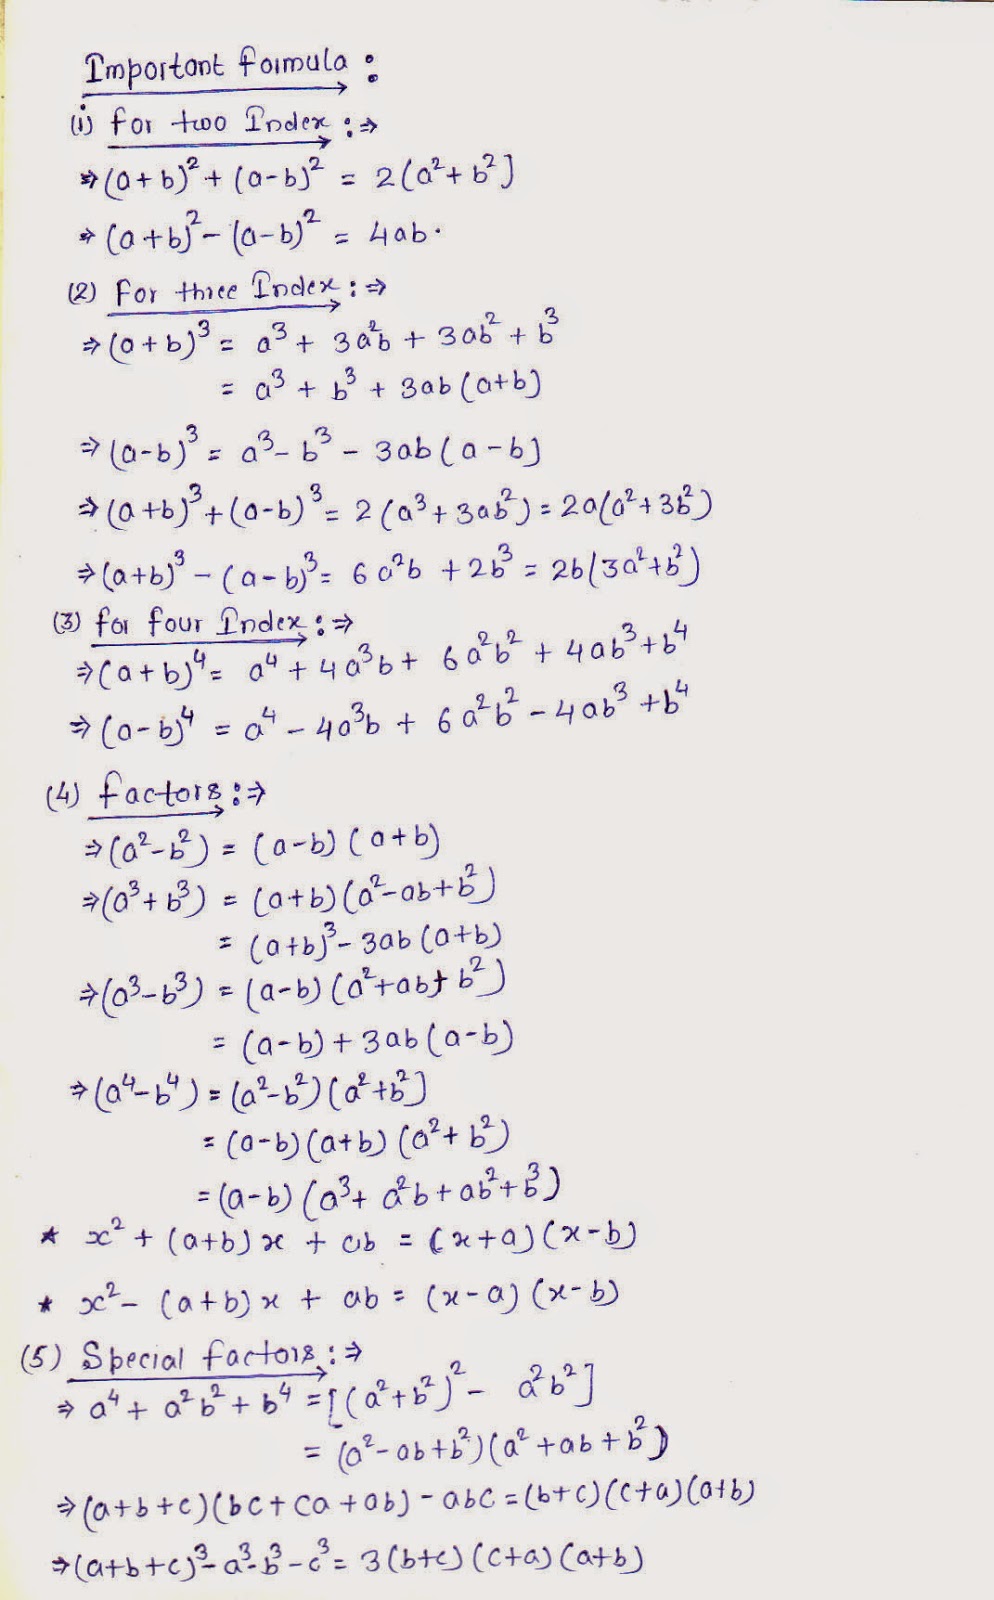 Important formula :
(1) for two Index :⇒
⇒ (a+b)² + (a-b)² = 2(a²+b²)
⇒ (a+b)² - (a-b)² = 4ab.
(2) For three Index :⇒
⇒ (a+b)³ = a³ + 3a²b + 3ab² + b³
= a³ + b³ + 3ab(a+b)
⇒ (a-b)³ = a³ - b³ - 3ab(a-b)
⇒ (a+b)³ + (a-b)³ = 2(a³+3ab²) = 2a(a²+3b²)
⇒ (a+b)³ - (a-b)³ = 6a²b + 2b³ = 2b(3a²+b²)
(3) for four Index :⇒
⇒ (a+b)⁴ = a⁴ + 4a³b + 6a²b² + 4ab³ + b⁴
⇒ (a-b)⁴ = a⁴ - 4a³b + 6a²b² - 4ab³ + b⁴
(4) factors :⇒
⇒ (a²-b²) = (a-b)(a+b)
⇒ (a³+b³) = (a+b)(a²-ab+b²)
= (a+b)³ - 3ab(a+b)
⇒ (a³-b³) = (a-b)(a²+ab+b²)
= (a-b) + 3ab(a-b)
⇒ (a⁴-b⁴) = (a²-b²)(a²+b²)
= (a-b)(a+b)(a²+b²)
= (a-b)(a³+a²b+ab²+b³)
* x² + (a+b)x + ab = (x+a)(x-b)
* x² - (a+b)x + ab = (x-a)(x-b)
(5) Special factors :⇒
⇒ a⁴ + a²b² + b⁴ = [(a²+b²)² - a²b²]
= (a²-ab+b²)(a²+ab+b²)
⇒ (a+b+c)(bc+ca+ab) - abc = (b+c)(c+a)(a+b)
⇒ (a+b+c)³ - a³ - b³ - c³ = 3(b+c)(c+a)(a+b)